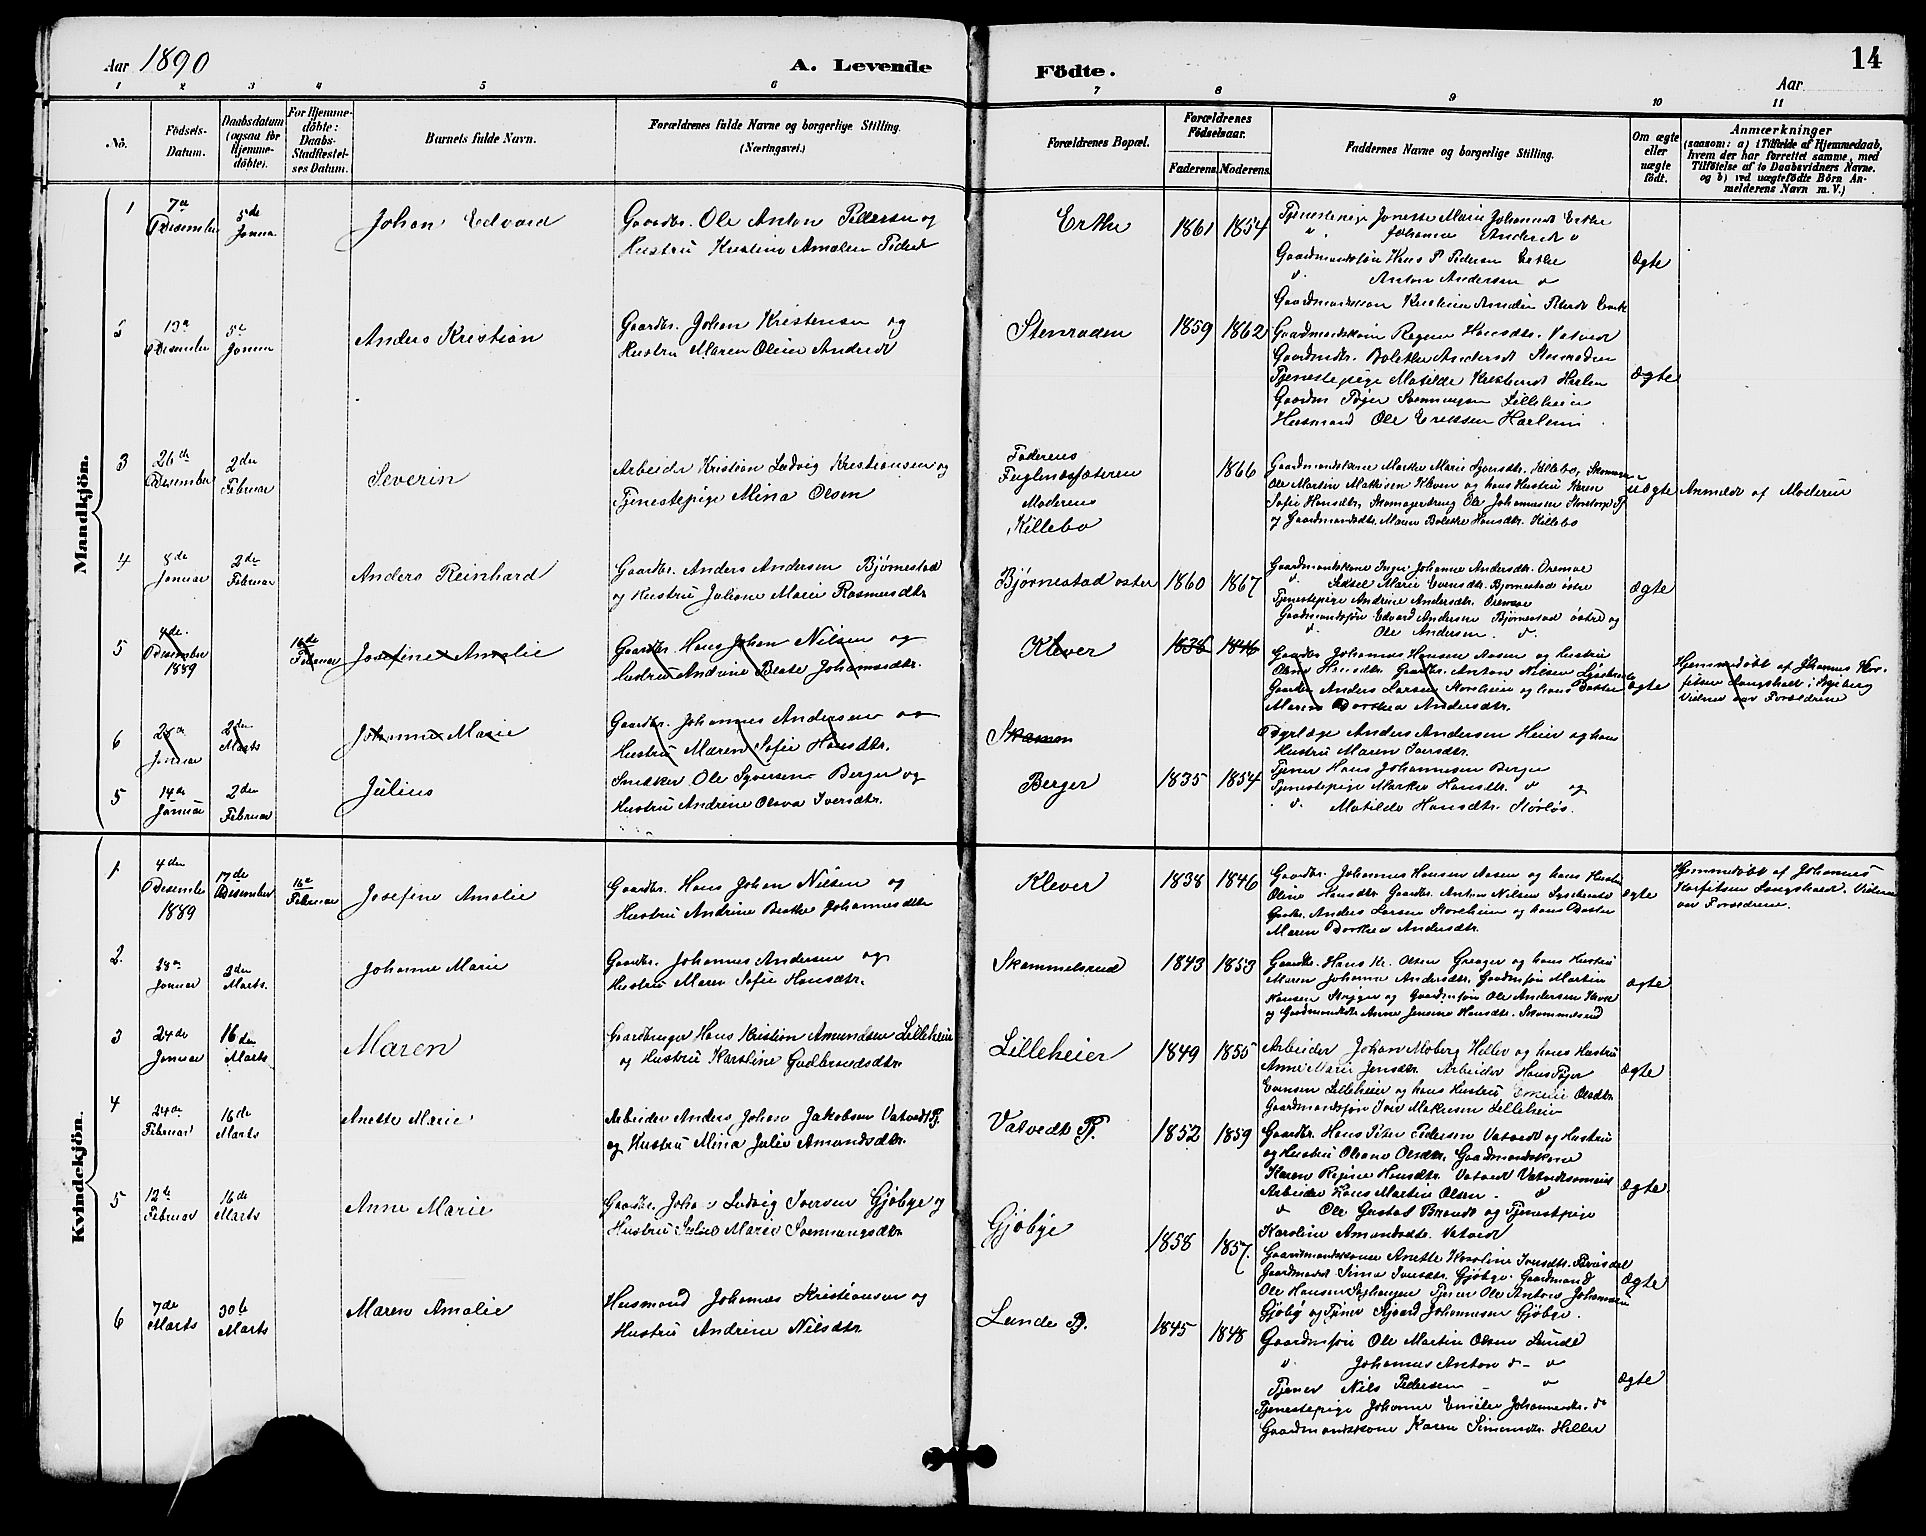 Aar 1890
A. Levende
Födte.
14
Aar
1 2 3 4 5 6 7 8 9 10 11
No.
Födsels-
Datum.
Daabsdatum
(ogsaa for
Hjemme-
döbte).
For Hjemme-
döbte:
Daabs-
Stadfæstel-
ses Datum.
Barnets fulde Navn.
Forældrenes fulde Navne og borgerlige Stilling.
(Næringsvei.)
Forældrenes Bopæl.
Forældrenes
Födselsaar.
Faderens. Moderens.
Faddernes Navne og borgerlige Stilling.
Om ægte
eller
uægte
födt.
Anmærkninger
(saasom: a) i Tilfælde af Hjemmedaab,
hvem der har forrettet samme, med
Tilföielse af to Daabsvidners Navne.
og b) ved uægtefödte Börn An-
melderens Navn m. V.)
Mandkjön.
1
7de
Desember
5de
Januar
Johan Edvard
Gaardbr. Ole Anton Pedersen og
Hustru Kristine Amalie Pedersd
Erthe
1861 1854
Tjenestepige Jonette Marie Johannesd Erthe
" Johanne Andersd "
Gaardmandssøn Hans P Pedersen Erthe
" Anton Andersen "
Ægte
2
13de
Desember
5te
Januar
Anders Kristian
Gaardbr. Johan Kristensen og
Hustru Maren Oline Andersd
Stenroden
1859 1862
Gaardmandskone Regine Hansdtr. Vatvedt
Gaardmdtr. Bolette Andersdt Stenroden
Tjenestepige Matilde Kristensd
Husmand Ole Eriksen
Ægte
3
26de
Desember
2den
Februar
Severin
Arbeider Kristian Ludvig Kristiansen og
Tjenestepige Mina Olsen
Faderens
Fuglenæsfæteren
Moderens
Killebo
1866
Gaardmandskone Marthe Marie Syversdtr. Killebo,
Ole Martin Mathisen Kleven og hans Hustru Karen
Sofie Hansdtr, Skomagerdreng Ole Johannesen Storetorp Pl
og Gaardmandsdtr. Maren Bolette Hansdtr. Killebo
uægte
Anmeldt af Moderen
4
8de
Januar
2den
Februar
Anders Reinhard
Gaardbr. Anders Andersen Bjørnestad
og Hustru Juliane Marie Rasmusdtr
Bjørnestad øster
1860 1867
Gaardmandskone Inger Johanne Andersdtr. Oremoe
" Sidsel Marie Evensdtr. Bjørnestad østre
Tjenestepige Andrine Andersdtr. Oremoe
Gaardmandssøn Edvard Andersen Bjørnestad østre og
" Ole Andersen. "
Ægte
5
4de
Desember
1889
16de
Februar
Josefine Amalie
Gaardbr. Hans Johan Nilsen og
Hustru Andrine Beate Johannesdtr.
Klever
1838 1846
Gaardbr Johannes Hansen Aasen og Hustru
Oline Hansdtr. Gaardbr. Anton Nilsen
Gaardbr Anders Larsen Storeheier og hans Datter
Maren Dorthea Andersdtr.
ægte
Hjemmedøbt af Johannes Hor-
fitsen Langsholt i Skjeberg
Vidner var Forældrene
6
28de
Januar
2den
Marts
Johanne Marie
Gaardbr. Johannes Andersen og
Hustru Maren Sofie Hansdtr.
Skammen
5
14de
Januar
2den
Februar
Julius
Snedker Ole Syversen Berger og
Hustru Andrine Olava Iversdtr.
Berger
1835 1854
Dyrlæge Anders Andersen Heier og hans
Hustru Maren Iversdtr.
Tjener Hans Johannesen Berger
Tjenestepige Marthe Hansdtr. " og
" Matilde Hansdtr. Storløs.
Kvindekjön.
1
4den
Desember
1889
17de
Desember
16de
Februar
Josefine Amalie
Gaardbr. Hans Johan Nilsen og
Hustru Andrine Beathe Johannesdtr
Klever
1838 1846
Gaardbr. Johannes Hansen Aasen og hans Hustru
Oline Hansdtr. Gaardbr. Anton Nilsen
Gaardbr. Anders Larsen Storeheier og hans Datter
Maren Dorthea Andersdtr.
ægte
Hjemmedøbt af Johannes
Horfitsen Langsholt. Vidnene
var Forældrene.
2.
28de
Januar
2den
Marts.
Johanne Marie
Gaardbr. Johannes Andersen og
Hustru Maren Sofie Hansdtr.
Skammelsrud
1843 1853
Gaardbr. Hans Kr. Olsen Greager og hans Hustru
Maren Johanne Andersdtr. Gaardmsøn Martin
Hansen Skygger og Gaardmsøn Ole Andersen
og Gaardmandsdtr Anne Jensine Hansdtr. Skammelsrud
ægte
3
24de
Januar
16den
Marts.
Maren
Gaardbruger Hans Kristian Amundsen Lilleheier
og Hustru Karoline Gudbrandsdtr.
Lilleheier
1849 1855
Arbeider Johan Moberg Heller og hans Hustru
Anne Marie Jensdtr. Arbeider Hans Peter
Evensen Lilleheier og hans Hustru Emelie Olsdtr.
Gaardmandssøn Iver Mathisen Lilleheier
ægte
4
24de
Februar
16de
Marts
Anette Marie
Arbeider Anders Johan Jakobsen Vatvedt Pl.
og Hustru Mina Julie Amundsdtr.
Vatvedt Pl.
1852 1859
Gaardbr. Hans Peter Pedersen Vatvedt og Hustru
og Hustru Oleane Olsdtr. Gaardmandskone
Karen Regine Hansdtr. Vatvedt
Arbeider Hans Martin Olsen. "
" Ole Gustav Brandt og Tjenestepige
Karoline Amundsdtr. Vatvedt
ægte
5
12te
Februar
16de
Marts
Anne Marie
Gaardbr. Johan Ludvig Iversen Gjøbye og
Hustru Marie
Gjøbye
1858 1857.
Gaardmandskone Anette Karoline Iversdtr.
Gaardmandsd Sina Iversdtr. Gjøbye. Gaardmand
Ole Hansen Tjener Ole Anton Johannesen
Gjøby og Tjener Sigvard Johannesen Gjøbye.
Ægte
6
7de
Marts
30te
Marts
Maren Amalie
Husmand Johannes Kristiansen og
Hustru Andrine Nilsdtr.
Lunde Pl.
1845 1848
Gaardmsøn Ole Martin Olsen Lunde
" Johannes Anton "
Tjener Nils Pedersen "
Tjenestepige Johanne Emelie Johannesdtr.
Gaardmandskone Karen Simensdtr. Heller
Ægte